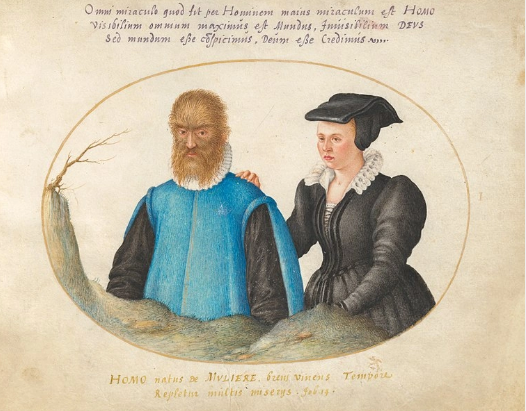 Omni miraculo quod fit per Hominem maius miraculum est HOMO
Visibilium omnium maximus est Mundus, Inuisibilium DEVS
Sed mundum esse cõspicimus, Deum esse Credimus
HOMO natus de MVLIERE, breui viuens Tempore
Repletur multis miserijs. Job. 14.